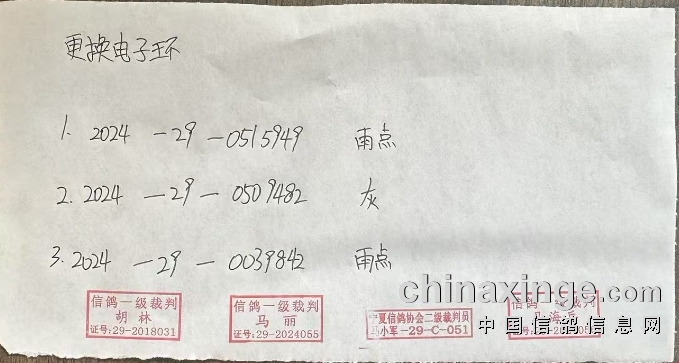 更换电子环
1. 2024 — 29 — 0515949 雨点
2. 2024 — 29 — 0509482 灰
3. 2024 — 29 — 0039842 雨点
信鸽一级裁判
胡林
证号:29-2018031
信鸽一级裁判
马丽
证号:29-2024055
宁夏信鸽协会二级裁判员
马小军-29-C-051
信鸽一级裁判
chinaxinge.com
中国信鸽信息网